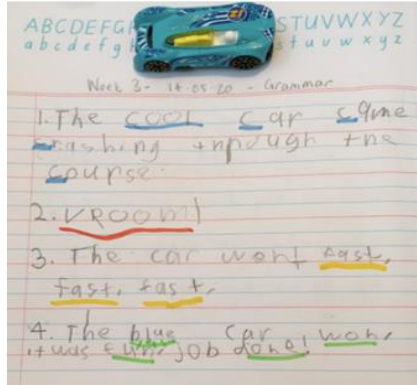 ABCDEFG STUVWXYZ
abcdefg stuvwxyz
Week 3- 14.05.20 - Grammar
1. The cool car came
crashing through the
course.
2. VROOM!
3. The car went fast,
fast, fast.
4. The blue car won,
it was fun, job done!